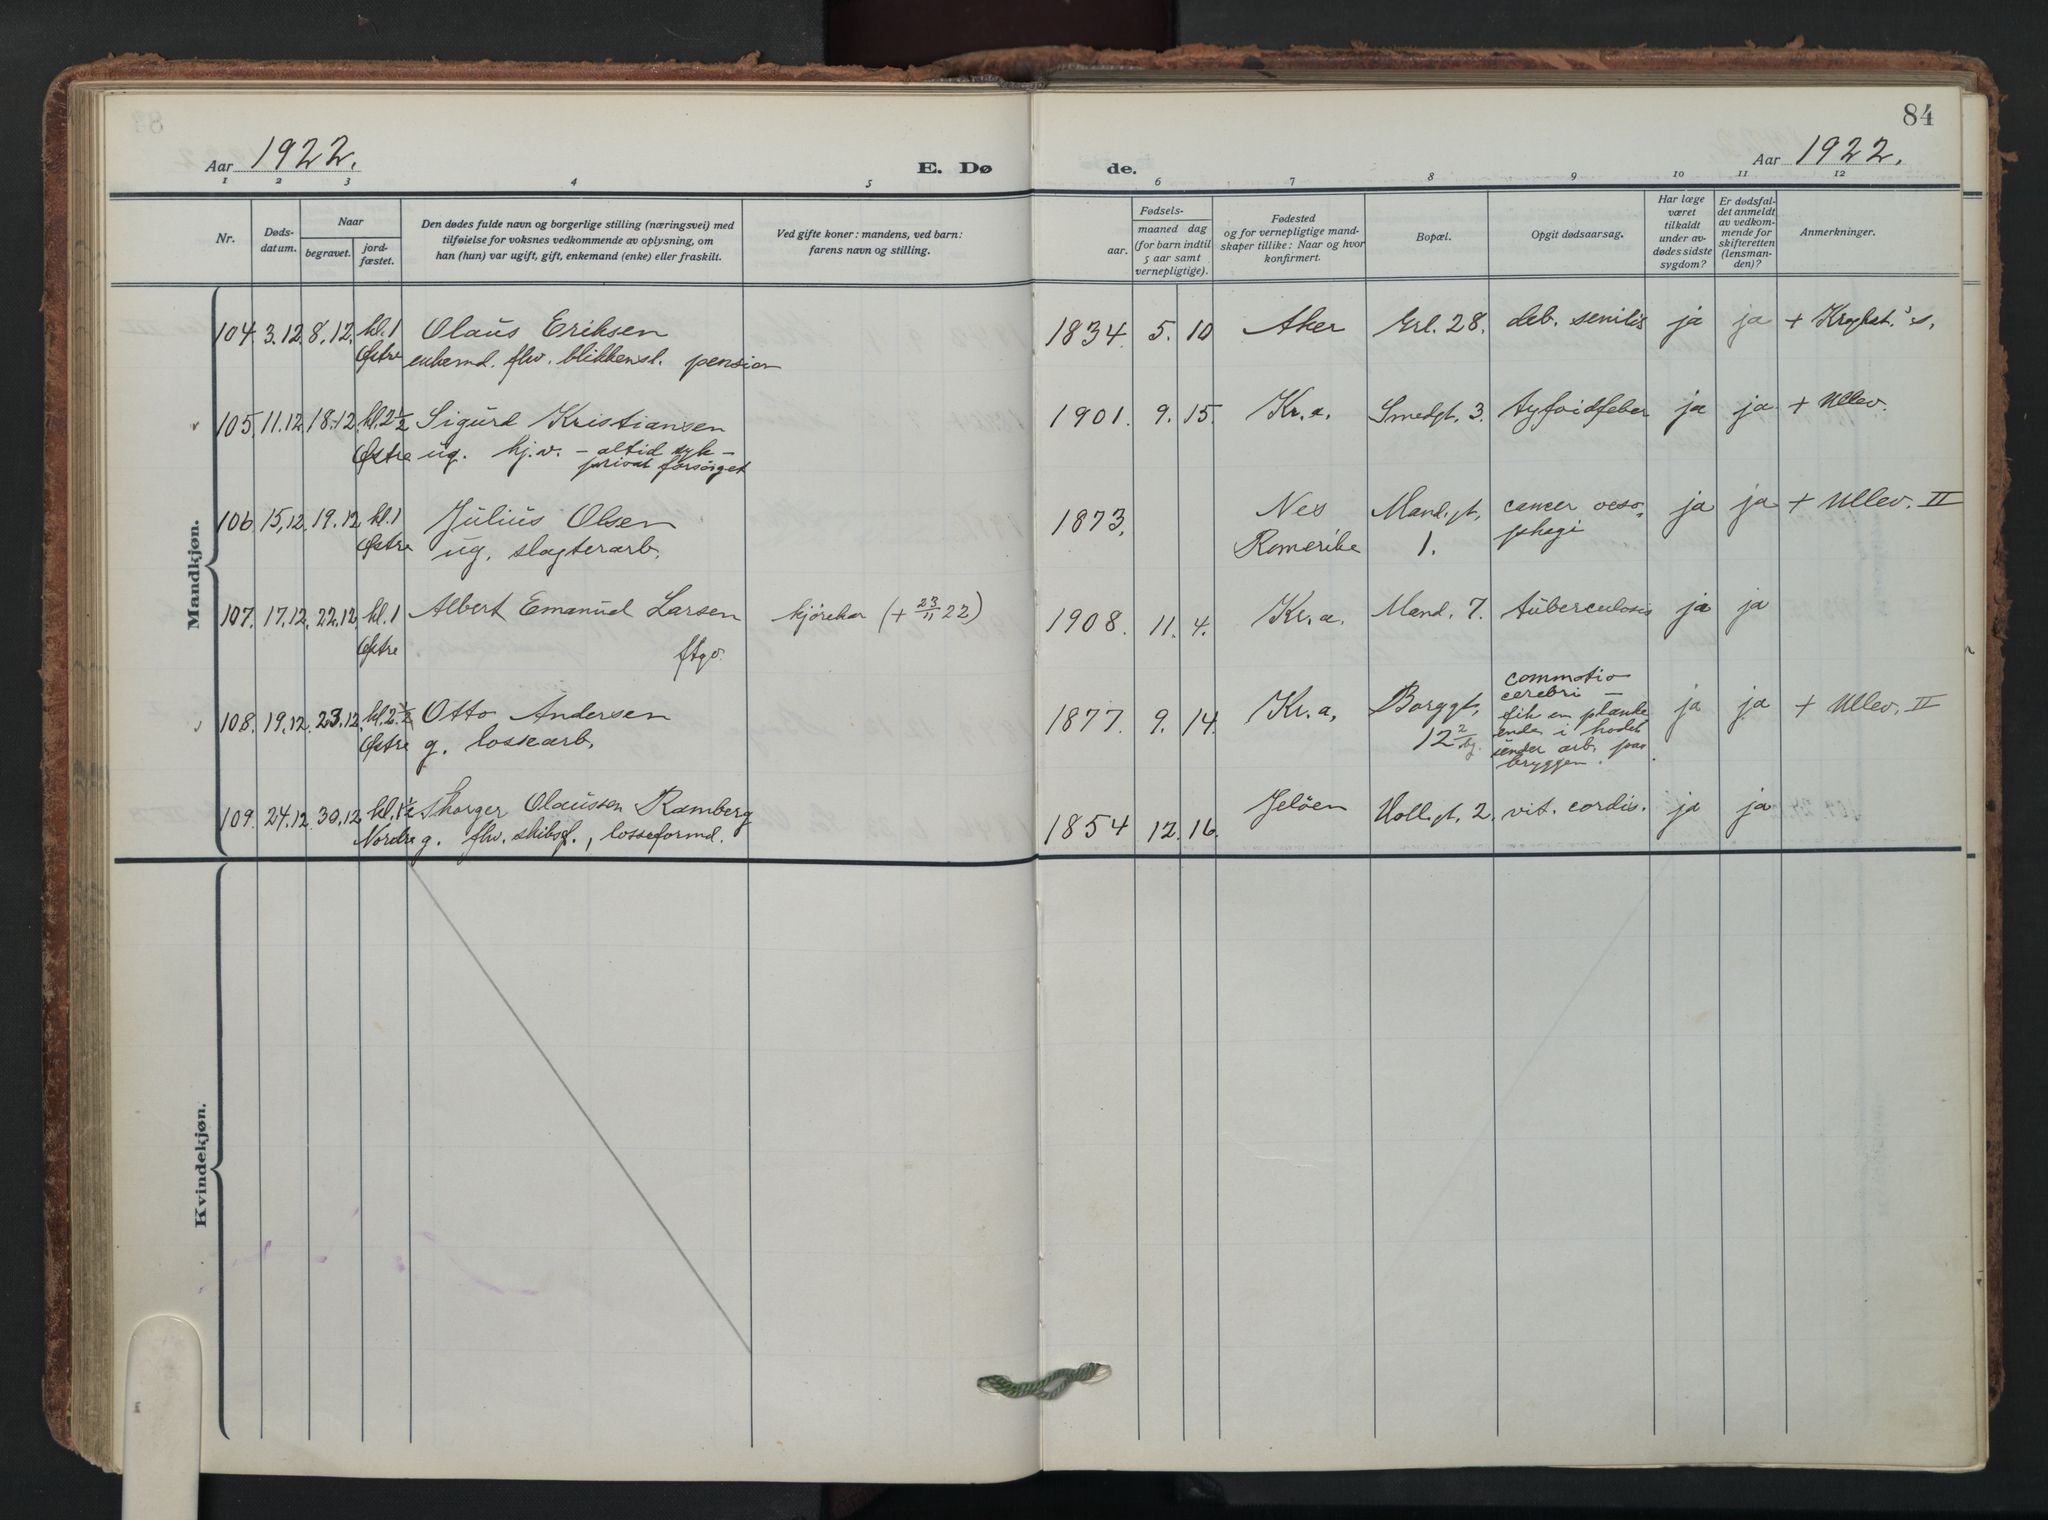 84
Aar 1922.
E. Dø de.
Aar 1922.
1 2 3 4 5 6 7 8 9 10 11 12
Nr.
Døds-
datum.
Naar
begravet.
jord-
fæstet.
Den dødes fulde navn og borgerlige stilling (næringsvei) med
tilføielse for voksnes vedkommende av oplysning, om
han (hun) var ugift, gift, enkemand (enke) eller fraskilt.
Ved gifte koner: mandens, ved barn:
farens navn og stilling.
Fødsels-
aar.
maaned dag
(for barn indtil
5 aar samt
vernepligtige).
Fødested
og for vernepligtige mand-
skaper tillike: Naar og hvor
konfirmert.
Bopæl.
Opgit dødsaarsag.
Har læge
været
tilkaldt
under av-
dødes sidste
sygdom?
Er dødsfal-
det anmeldt
av vedkom-
mende for
skifteretten
(lensman-
den)?
Anmerkninger.
Mandkjøn.
104. 3.12 8.12. kl. 1 Olaus Eriksen 1834. 5. 10 Aker Erl. 28. deb. senilis ja ja +
Østre enkemd. fhv. blikkensl. pension
105. 11.12. 18.12. kl. 2½ Sigurd Kristiansen 1901. 9. 15. Kr.a. Smedgt. 3. tyfoidfeber ja ja + Ullev.
Østre ug. hj.v. - altid syk -
privat forsørget
106. 15.12. 19.12. kl. 1 Julius Olsen 1873. Nes Mandgt. cancer oeso- ja ja + Ullev. II
Østre ug. slagterarb. Romerike 1. phagi
107. 17.12. 22.12. kl. 1 Albert Emanuel Larsen kjørekar (+ 23/11 22) 1908. 11. 4. Kr.a. Mand. 7. tuberculosis ja ja
Østre
108. 19.12. 23.12. kl. 2½ Otto Andersen 1877. 9. 14. Kr.a. Borggt. commotio ja ja + Ullev. II
cerebri -
Østre g. lossearb. 12 fik en planke
ende i hodet
under arb. paa
bryggen.
109. 24.12. 30.12. kl. 1½ Olaussen Ramberg 1854 12. 16. Jeløen Vollgt. 2. vit. cordis. ja ja
Nordre g. fhv. skibsf., losseformd.
Kvindekjøn.